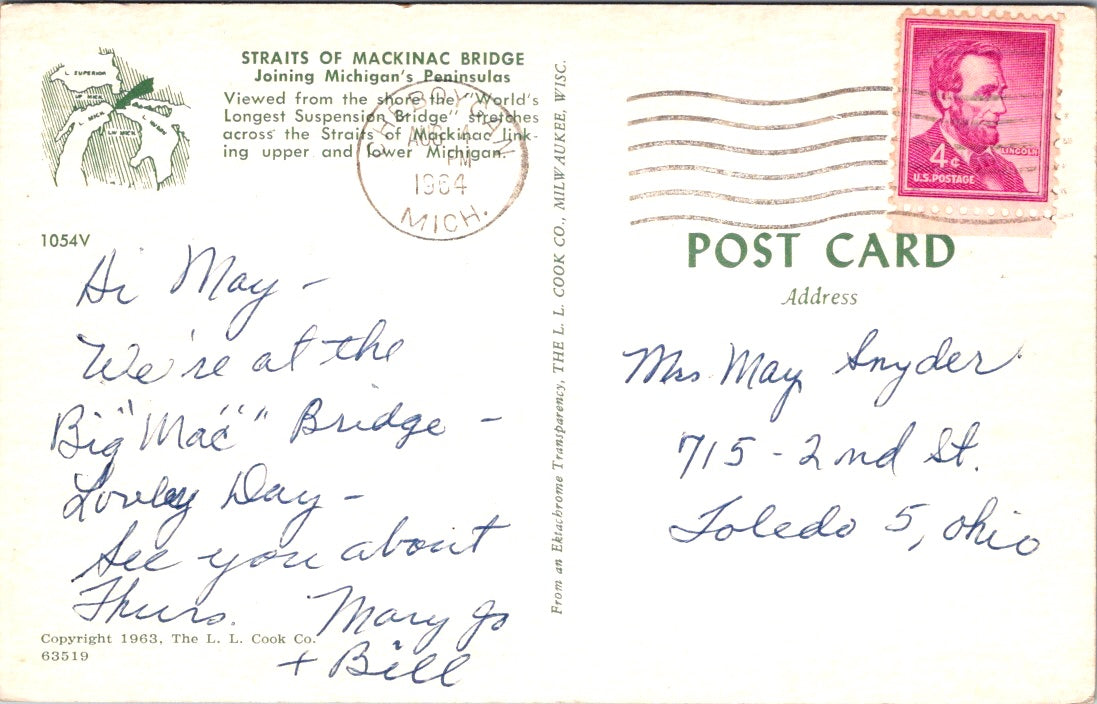 STRAITS OF MACKINAC BRIDGE
Joining Michigan's Peninsulas
Viewed from the shore the "World's
Longest Suspension Bridge" stretches
across the Straits of Mackinac link-
ing upper and lower Michigan.
L. SUPERIOR
UP. MICH.
L. MICH.
L. HURON
LW. MICH.
CHEBOYGAN
AUG 4
PM
1964
MICH.
4¢
LINCOLN
U.S. POSTAGE
1054V
Hi May -
We're at the
Big "Mac" Bridge -
Lovely Day -
See you about
Thurs. Mary Jo
+ Bill
Copyright 1963, The L. L. Cook Co.
63519
From an Ektachrome Transparency, THE L. L. COOK CO., MILWAUKEE, WISC.
POST CARD
Address
Mrs May Snyder
715 - 2nd St.
Toledo 5, Ohio